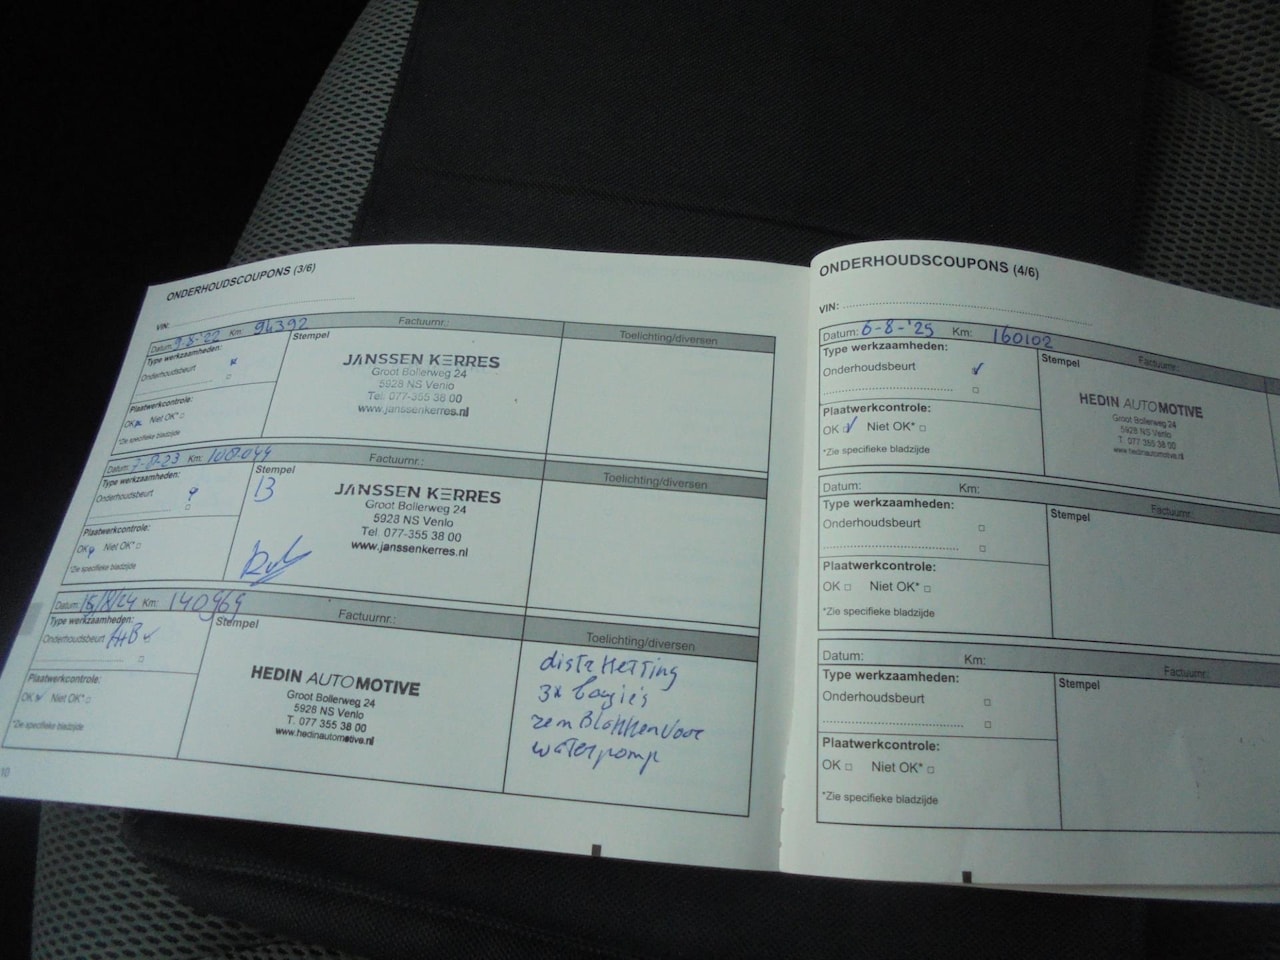 ONDERHOUDSCOUPONS (3/6)
VIN:
Datum: 9-8-'22 Km: 94392 Factuurnr.: Toelichting/diversen
Type werkzaamheden: Stempel
Onderhoudsbeurt
Plaatwerkcontrole:
OK Niet OK*
*Zie specifieke bladzijde
JANSSEN KERRES
Groot Bollerweg 24
5928 NS Venlo
Tel. 077-355 38 00
www.janssenkerres.nl
Datum: Km: Factuurnr.: Toelichting/diversen
Type werkzaamheden: Stempel
Onderhoudsbeurt
Plaatwerkcontrole:
OK Niet OK*
*Zie specifieke bladzijde
JANSSEN KERRES
Groot Bollerweg 24
5928 NS Venlo
Tel. 077-355 38 00
www.janssenkerres.nl
Datum: 15/8/24 Km: 140969 Factuurnr.: Toelichting/diversen
Type werkzaamheden: Stempel
Onderhoudsbeurt A+B
Plaatwerkcontrole:
OK Niet OK*
*Zie specifieke bladzijde
HEDIN AUTOMOTIVE
Groot Bollerweg 24
5928 NS Venlo
T. 077 355 38 00
www.hedinautomotive.nl
distr ketting
3x
remBlokken voor
waterpomp
10
ONDERHOUDSCOUPONS (4/6)
VIN:
Datum: 6-8-'25 Km: 160102 Factuurnr.:
Type werkzaamheden: Stempel
Onderhoudsbeurt
Plaatwerkcontrole:
OK Niet OK*
*Zie specifieke bladzijde
HEDIN AUTOMOTIVE
Groot Bollerweg 24
5928 NS Venlo
T. 077 355 38 00
www.hedinautomotive.nl
Datum: Km: Factuurnr.:
Type werkzaamheden: Stempel
Onderhoudsbeurt
Plaatwerkcontrole:
OK Niet OK*
*Zie specifieke bladzijde
Datum: Km: Factuurnr.:
Type werkzaamheden: Stempel
Onderhoudsbeurt
Plaatwerkcontrole:
OK Niet OK*
*Zie specifieke bladzijde